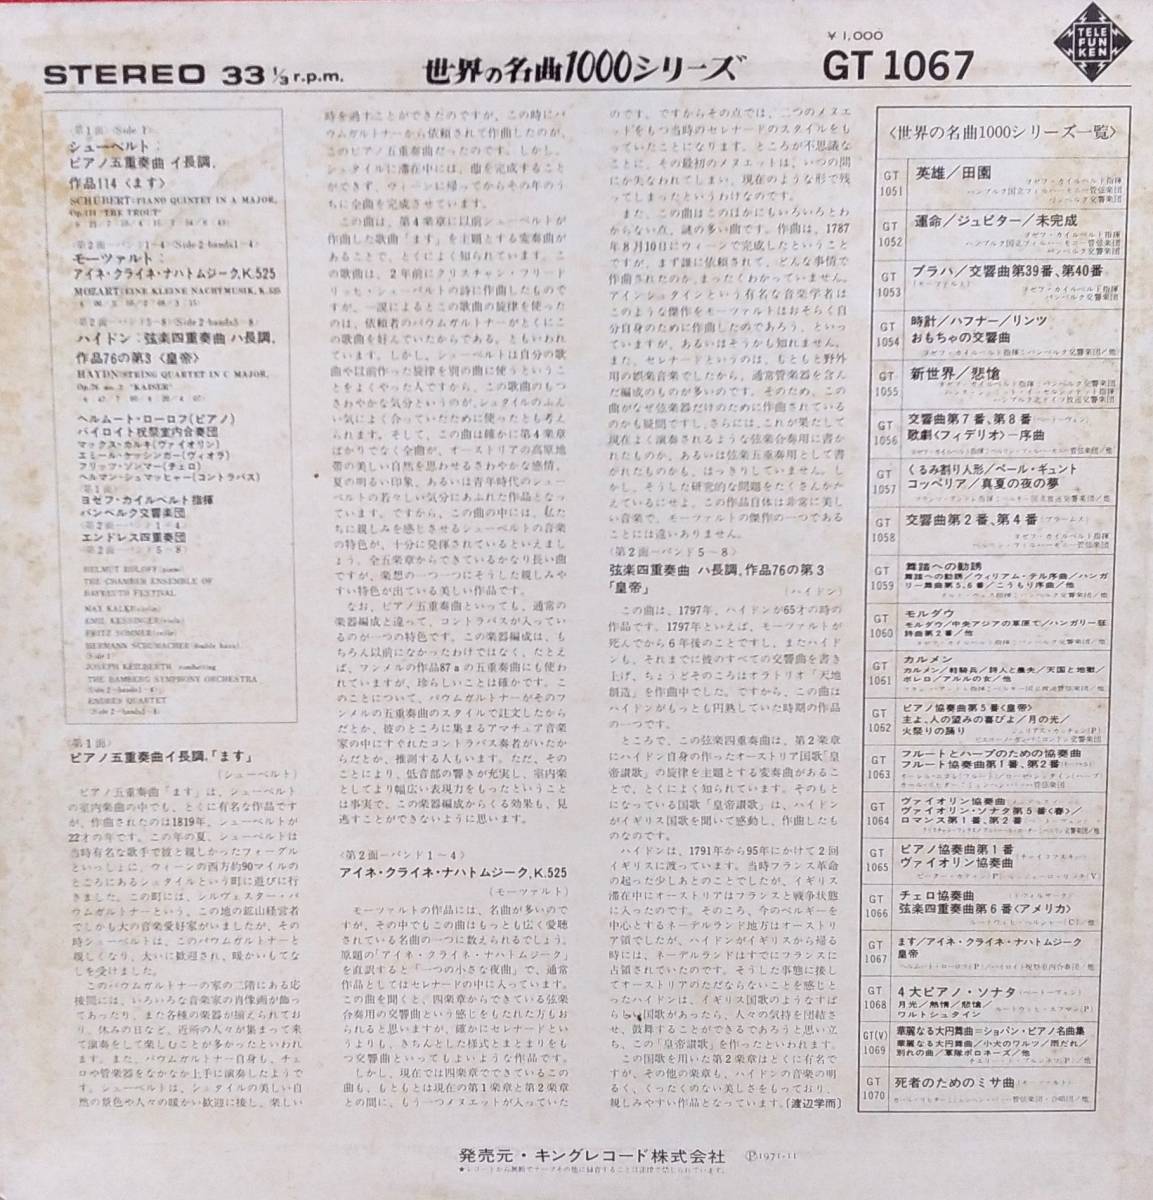 STEREO 33 1/3 r.p.m.
世界の名曲1000シリーズ
¥1,000
GT 1067
TELE
FUN
KEN
〈第1面〉〈Side 1〉
シューベルト:
ピアノ五重奏曲 イ長調,
作品114〈ます〉
SCHUBERT: PIANO QUINTET IN A MAJOR,
Op.114 "THE TROUT"
〈第2面-バンド1-4〉〈Side 2-bands1-4〉
モーツァルト:
アイネ・クライネ・ナハトムジーク, K.525
MOZART: EINE KLEINE NACHTMUSIK, K.525
〈第2面-バンド5-8〉〈Side 2-bands5-8〉
ハイドン:弦楽四重奏曲 ハ長調,
作品76の第3〈皇帝〉
HAYDN: STRING QUARTET IN C MAJOR,
"KAISER"
ヘルムート・ローロフ(ピアノ)
バイロイト祝祭室内合奏団
マックス・カルキ(ヴァイオリン)
エミール・ケッシンガー(ヴィオラ)
フリッツ・ゾンマー(チェロ)
ヘルマン・シュマッヒャー(コントラバス)
〈第1面〉
ヨゼフ・カイルベルト指揮
バンベルク交響楽団
〈第2面-バンド1-4〉
エンドレス四重奏団
〈第2面-バンド5-8〉
HELMUT ROLOFF(piano)
THE CHAMBER ENSEMBLE OF
BAYREUTH FESTIVAL
MAX KALKE(violin)
EMIL KESSINGER(viola)
FRITZ SOMMER(cello)
HERMANN SCHUMACHER(double bass)
〈Side 1〉
JOSEPH KEILBERTH conducting
THE BAMBERG SYMPHONY ORCHESTRA
〈Side 2-bands1-4〉
ENDRES QUARTET
〈Side 2-bands5-8〉
〈第1面〉
ピアノ五重奏曲イ長調,「ます」
(シューベルト)
ピアノ五重奏曲「ます」は、シューベルト
の室内楽曲の中でも、とくに有名な作品です
が、作曲されたのは1819年、シューベルトが
22才の年です。この年の夏、シューベルトは
当時有名な歌手で彼と親しかったフォーグル
といっしょに、ウィーンの西方約90マイルの
ところにあるシュタイルという町に遊びに行
きました。この町には、シルヴェスター・バ
ウムガルトナーという、この地の鉱山経営者
でしかも大の音楽愛好家がいましたが、その
時シューベルトは、このバウムガルトナーと
親しくなり、大いに歓迎され、暖かいもてな
しを受けました。
このバウムガルトナーの家の二階にある応
接間には、いろいろな音楽家の肖像画が飾っ
てあったり、また各種の楽器が揃えられてお
り、休みの日など、近所の人々が集まって来
て演奏をして楽しむことが多かったといわれ
ます。また、バウムガルトナー自身も、チェ
ロや管楽器をなかなか上手に演奏したようで
す。シューベルトは、シュタイルの美しい自
然の景色や人々の暖かい歓迎に接し、楽しい
時を過すことができたのですが、この時にバ
ウムガルトナーから依頼されて作曲したのが、
このピアノ五重奏曲だったのです。しかし、
シュタイルに滞在中には、曲を完成すること
ができず、ウィーンに帰ってからその年のう
ちに全曲を完成させています。
この曲は、第4楽章に以前シューベルトが
作曲した歌曲「ます」を主題とする変奏曲が
あることで、とくによく知られています。こ
の歌曲は、2年前にクリスチャン・フリード
リッヒ・シューベルトの詩に作曲したもので
すが、一説によるとこの歌曲の旋律を使った
のは、依頼者のバウムガルトナーがとくにこ
の歌曲を好んでいたからである、ともいわれ
ています。しかし、シューベルトは自分の歌
曲や以前作った旋律を別の曲に使うというこ
とをよくやった人ですから、この歌曲のもつ
さわやかな気分というのが、シュタイルのふん
い気によく合っていたために使ったとも考え
られます。そして、この曲は確かに第4楽章
ばかりでなく全曲が、オーストリアの高原地
帯の美しい自然を思わせるさわやかな感情、
夏の明るい印象、あるいは青年時代のシュー
ベルトの若々しい気分にあふれた作品となっ
ています。ですから、この曲の中には、私た
ちに親しみを感じさせるシューベルトの音楽
の特色が、十分に発揮されているといえまし
ょう。全五楽章からできているかなり長い曲
ですが、楽想の一つ一つにそうした親しみや
すい特色が出ている美しい作品です。
なお、ピアノ五重奏曲といっても、通常の
楽器編成と違って、コントラバスが入ってい
るのが一つの特色です。この楽器編成は、も
ちろん以前になかったわけではなく、たとえ
ば、フンメルの作品87aの五重奏曲にも使わ
れていますが、珍らしいことは確かです。こ
のことについて、バウムガルトナーがそのフ
ンメルの五重奏曲のスタイルで註文したから
だとか、彼のところに集まるアマチュア音楽
家の中にすぐれたコントラバス奏者がいたか
らだとか、推測する人もいます。ただ、その
ことにより、低音部の響きが充実し、室内楽
としてより幅広い表現力をもったということ
は事実で、この楽器編成からくる効果も、見
逃すことができないように思います。
〈第2面-バンド1~4〉
アイネ・クライネ・ナハトムジーク, K.525
(モーツァルト)
モーツァルトの作品には、名曲が多いので
すが、その中でもこの曲はもっとも広く愛聴
されている名曲の一つに数えられるでしょう。
原題の「アイネ・クライネ・ナハトムジーク」
を直訳すると「一つの小さな夜曲」で、通常
作品としてはセレナードの中に入っています。
この曲を聞くと、四楽章からできている弦楽
合奏用の交響曲という感じをもたれた方もお
られると思いますが、確かにセレナードとい
うよりも、きちんとした様式とまとまりをもつ
交響曲といってもよいような作品です。
しかし、現在では四楽章でできているこの
曲も、もともとは現在の第1楽章と第2楽章
との間に、もう一つメヌエットが入っていた
のです。ですからその点では、二つのメヌエ
ットをもつ当時のセレナードのスタイルをも
っていたことになります。ところが不思議な
ことに、その最初のメヌエットは、いつの間
にか失なわれてしまい、現在のような形で残
ってしまったというわけなのです。
また、この曲はこのほかにもいろいろとわ
からない点、謎の多い曲です。作曲は、1787
年8月10日にウィーンで完成したということ
ですが、まず誰に依頼されて、どんな事情で
作曲されたのか、まったくわかっていません。
アインシュタインという有名な音楽学者は
このような傑作をモーツァルトはおそらく自
分自身のために作曲したのであろう、といっ
ていますが、あるいはそうかも知れません。
また、セレナードというのは、もともと野外
用の娯楽音楽でしたから、通常管楽器を含ん
だ編成のものが多いのです。そのため、この
曲がなぜ弦楽器だけのために作曲されている
のかも疑問ですし、さらには、これが果たして
現在よく演奏されるような弦楽合奏用に書か
れたものか、あるいは弦楽五重奏用として書
かれたものかも、はっきりしていません。し
かし、そうした研究的な問題をたくさんかか
えているにせよ、この作品自体は非常に美し
い音楽で、モーツァルトの傑作の一つである
ことには違いありません。
〈第2面-バンド5~8〉
弦楽四重奏曲 ハ長調, 作品76の第3
「皇帝」
(ハイドン)
この曲は、1797年、ハイドンが65才の時の
作品です。1797年といえば、モーツァルトが
死んでから6年後のことですし、またハイド
ンも、それまでに彼のすべての交響曲を書き
上げ、ちょうどそのころはオラトリオ「天地
創造」を作曲中でした。ですから、この曲は
ハイドンがもっとも円熟していた時期の作品
の一つです。
ところで、この弦楽四重奏曲は、第2楽章
にハイドン自身の作ったオーストリア国歌「皇
帝讃歌」の旋律を主題とする変奏曲があるこ
とで、とくによく知られています。そのもと
になっている国歌「皇帝讃歌」は、ハイドン
がイギリス国歌を聞いて感動し、作曲したも
のなのです。
ハイドンは、1791年から95年にかけて2回
イギリスに渡っています。当時フランス革命
の起った少しあとのことでしたが、イギリス
滞在中にオーストリアはフランスと戦争状態
に入ったのです。そのころ、今のベルギーを
中心とするネーデルランド地方はオーストリ
ア領でしたが、ハイドンがイギリスから帰る
時には、ネーデルランドはすでにフランスに
占領されていたのです。そうした事態に接し
てオーストリアのただならないことを感じと
ったハイドンは、イギリス国歌のようなすば
らしい国歌があったら、人々の気持を団結さ
せ、鼓舞することができるであろうと思い立
ち、この「皇帝讃歌」を作ったといわれます。
この国歌を用いた第2楽章はとくに有名で
すが、その他の楽章も、ハイドンの音楽の明
るく、くったくのない美しさをもっており、
親しみやすい作品となっています。〔渡辺学而〕
〈世界の名曲1000シリーズ一覧〉
GT 1051 英雄/田園
ヨゼフ・カイルベルト指揮
ハンブルク国立フィルハーモニー管弦楽団
バンベルク交響楽団
GT 1052 運命/ジュピター/未完成
ヨゼフ・カイルベルト指揮
ハンブルク国立フィルハーモニー管弦楽団
バンベルク交響楽団
GT 1053 プラハ/交響曲第39番、第40番
(モーツァルト)
ヨゼフ・カイルベルト指揮
バンベルク交響楽団
GT 1054 時計/ハフナー/リンツ
おもちゃの交響曲
ヨゼフ・カイルベルト指揮:バンベルク交響楽団/他
GT 1055 新世界/悲愴
ヨゼフ・カイルベルト指揮:バンベルク交響楽団
GT 1056 交響曲第7番、第8番(ベートーヴェン)
歌劇〈フィデリオ〉-序曲
GT 1057 くるみ割り人形/ペール・ギュント
コッペリア/真夏の夜の夢
GT 1058 交響曲第2番、第4番(ブラームス)
ヨゼフ・カイルベルト指揮
GT 1059 舞踏への勧誘
舞踏への勧誘/ウィリアム・テル序曲/ハンガ
リー舞曲第5、6番/こうもり序曲/他
GT 1060 モルダウ
モルダウ/中央アジアの草原で/ハンガリー狂
詩曲第2番/他
GT 1061 カルメン
カルメン/軽騎兵/詩人と農夫/天国と地獄/
ボレロ/アルルの女/他
GT 1062 ピアノ協奏曲第5番〈皇帝〉
主よ、人の望みの喜びよ/月の光/
火祭りの踊り
ジュリアス・カッチェン(P)
GT 1063 フルートとハープのための協奏曲
フルート協奏曲第1番、第2番
GT 1064 ヴァイオリン協奏曲
ヴァイオリン・ソナタ第5番〈春〉/
ロマンス第1番、第2番
GT 1065 ピアノ協奏曲第1番
ヴァイオリン協奏曲
GT 1066 チェロ協奏曲
弦楽四重奏曲第6番〈アメリカ〉
GT 1067 ます/アイネ・クライネ・ナハトムジーク
皇帝
ヘルムート・ローロフ(P)/バイロイト祝祭室内合奏団/他
GT 1068 4大ピアノ・ソナタ(ベートーヴェン)
月光/熱情/悲愴/
ワルトシュタイン
GT(V) 1069 華麗なる大円舞曲=ショパン・ピアノ名曲集
華麗なる大円舞曲/小犬のワルツ/雨だれ/
別れの曲/軍隊ポロネーズ/他
GT 1070 死者のためのミサ曲(モーツァルト)
発売元・キングレコード株式会社 Ⓟ1971-11
★レコードから無断でテープその他に録音することは法律で禁じられています。